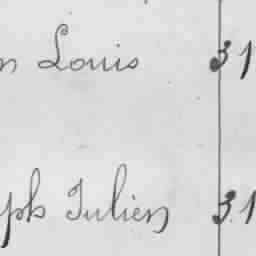 n Louis 31
ph Julien 31